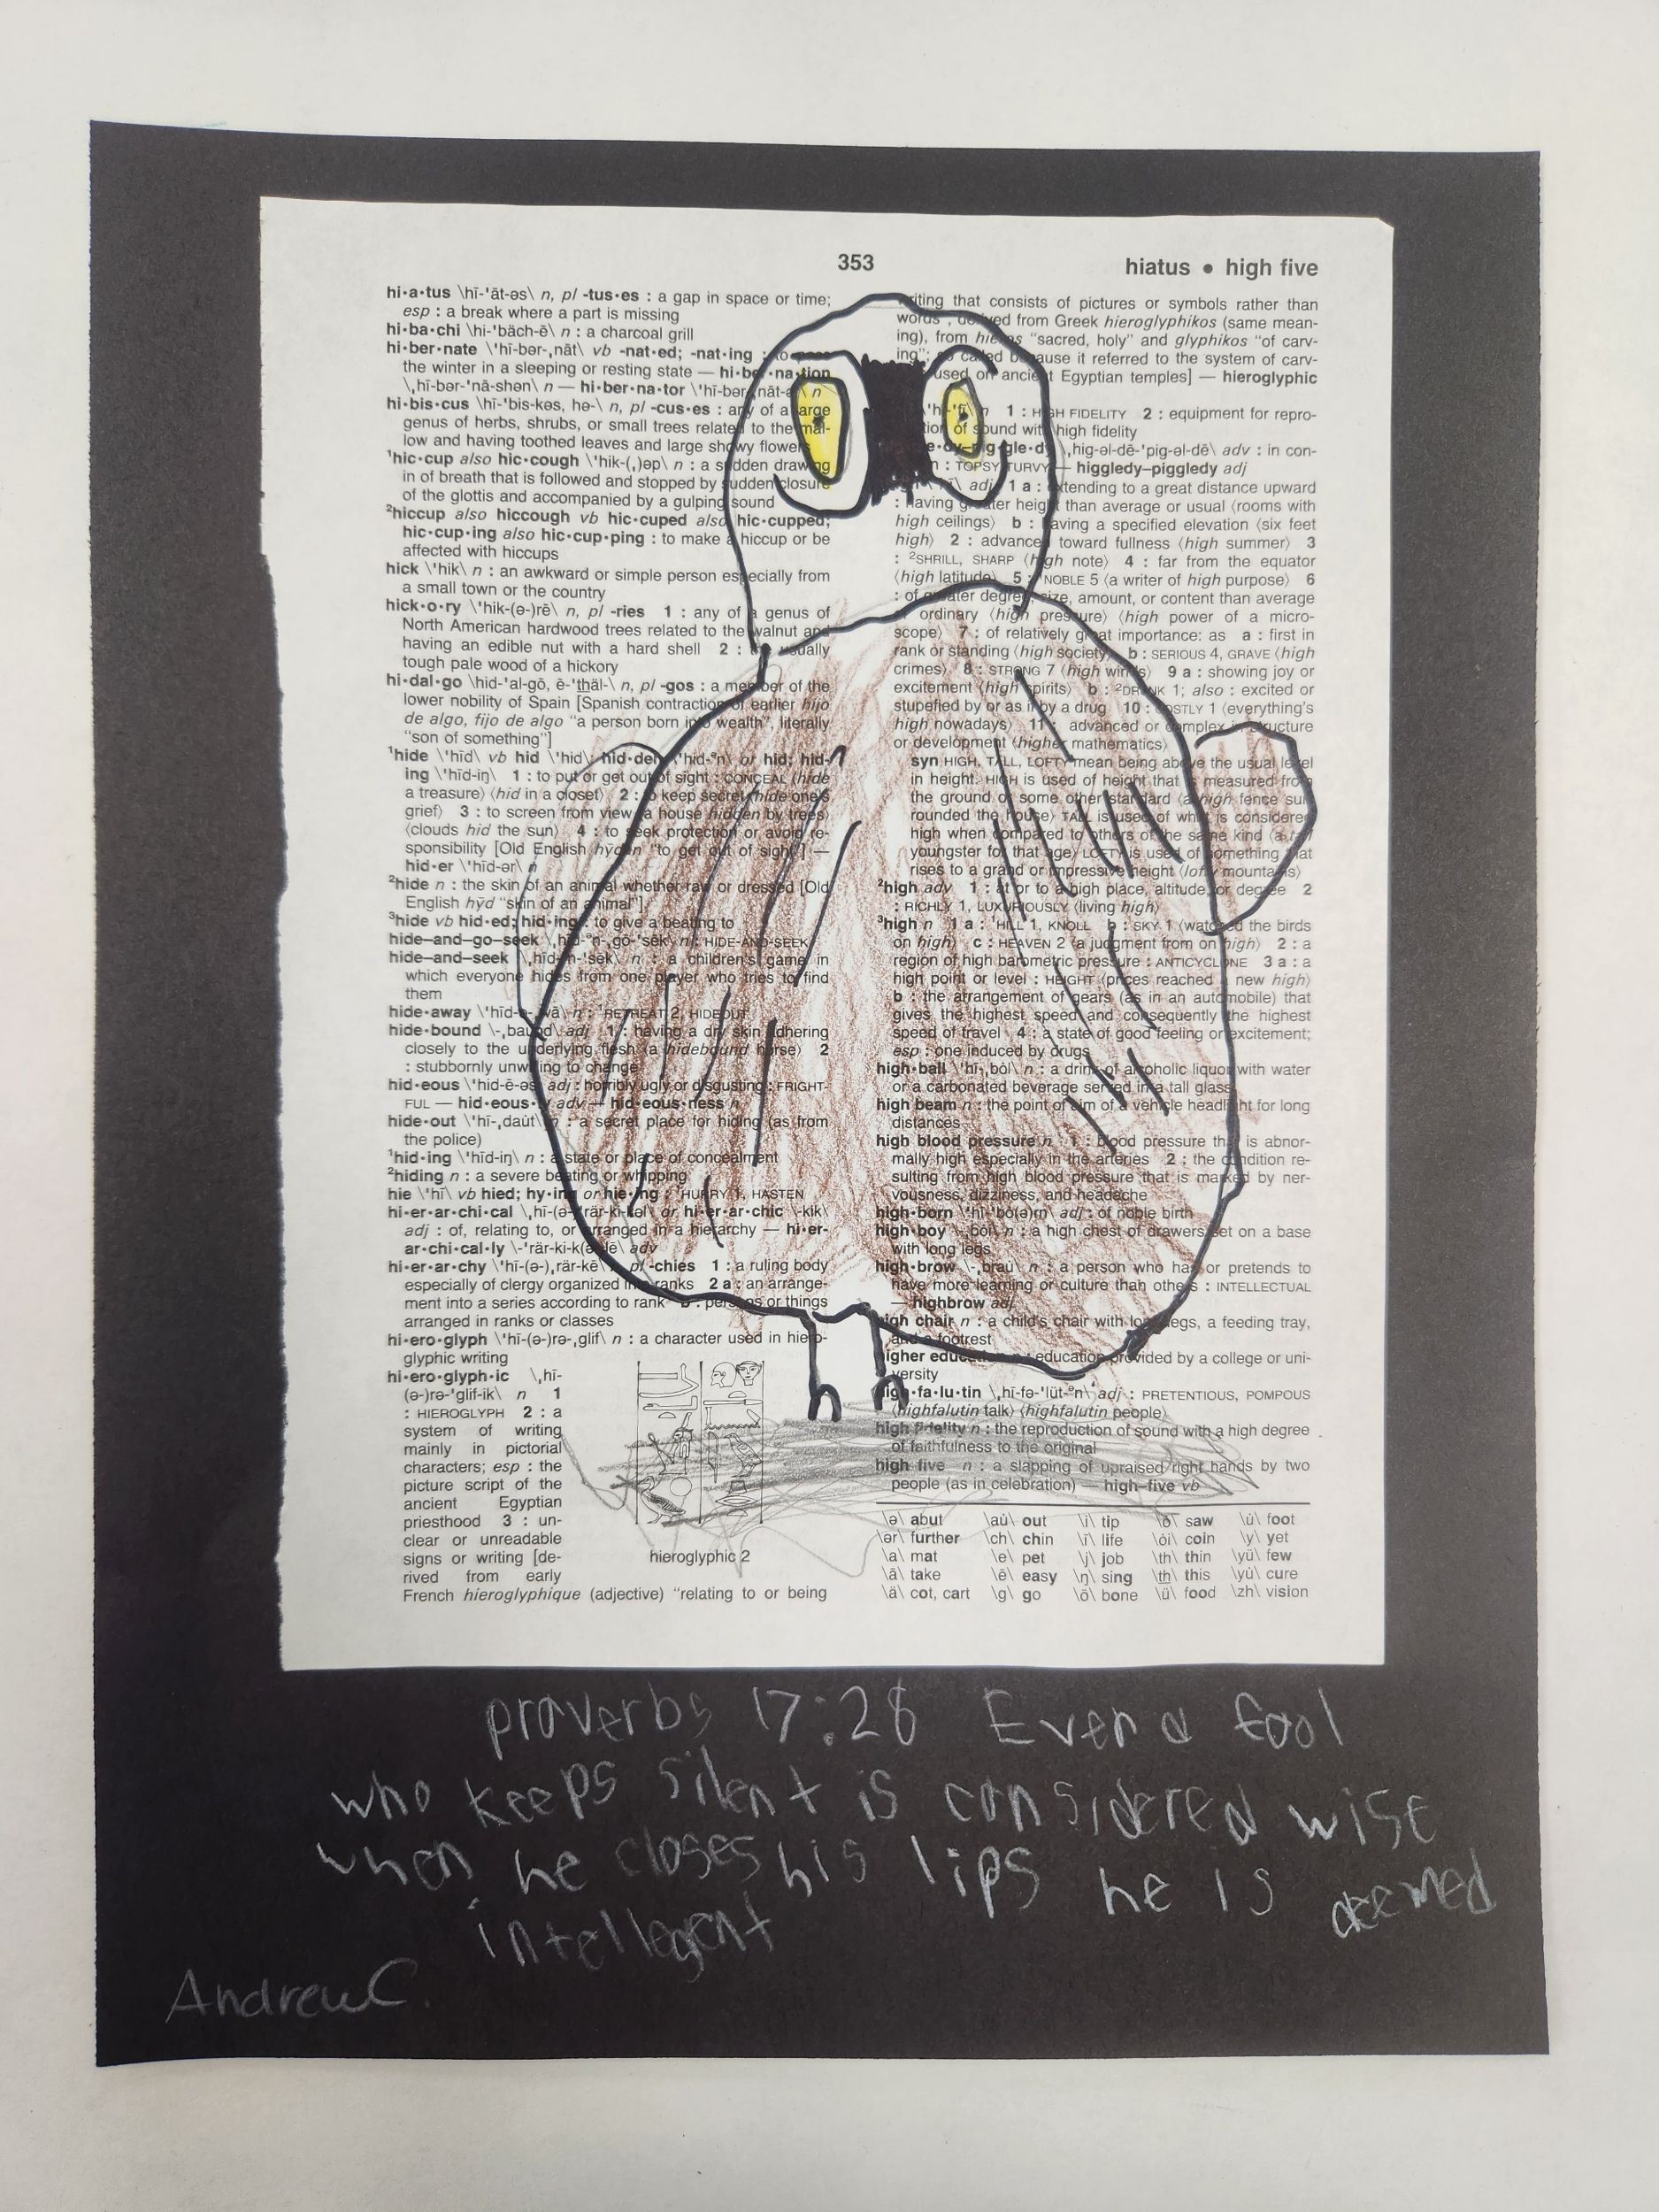 353
hiatus • high five
hi•a•tus \hī-'āt-əs\ n, pl -tus•es : a gap in space or time;
esp : a break where a part is missing
hi•ba•chi \hi-'bäch-ē\ n : a charcoal grill
hi•ber•nate \'hī-bər-ˌnāt\ vb -nat•ed; -nat•ing : to
the winter in a sleeping or resting state — hi•ber•na•tion
\ˌhī-bər-'nā-shən\ n — hi•ber•na•tor \'hī-bər-ˌnāt-ə \ n
hi•bis•cus \hī-'bis-kəs, hə-\ n, pl -cus•es : any of a large
genus of herbs, shrubs, or small trees related to the mal-
low and having toothed leaves and large showy flowers
¹hic•cup also hic•cough \'hik-(ˌ)əp\ n : a sudden drawing
in of breath that is followed and stopped by sudden closure
of the glottis and accompanied by a gulping sound
²hiccup also hiccough vb hic•cuped also hic•cupped;
hic•cup•ing also hic•cup•ping : to make a hiccup or be
affected with hiccups
hick \'hik\ n : an awkward or simple person especially from
a small town or the country
hick•o•ry \'hik-(ə-)rē\ n, pl -ries 1 : any of a genus of
North American hardwood trees related to the walnut and
having an edible nut with a hard shell 2 : the usually
tough pale wood of a hickory
hi•dal•go \hid-'al-gō, ē-'thäl-\ n, pl -gos : a member of the
lower nobility of Spain [Spanish contraction of earlier hijo
de algo, fijo de algo "a person born into wealth", literally
"son of something"]
¹hide \'hīd\ vb hid \'hid\; hid•den \'hid-ᵊn\ or hid; hid-
ing \'hīd-iŋ\ 1 : to put or get out of sight : CONCEAL ⟨hide
a treasure⟩ ⟨hid in a closet⟩ 2 : to keep secret ⟨hide one's
grief⟩ 3 : to screen from view ⟨a house hidden by trees⟩
⟨clouds hid the sun⟩ 4 : to seek protection or avoid re-
sponsibility [Old English hȳdan "to get out of sight"] —
hid•er \'hīd-ər\ n
²hide n : the skin of an animal whether raw or dressed [Old
English hȳd "skin of an animal"]
³hide vb hid•ed; hid•ing : to give a beating to
hide–and–go–seek \ˌhīd-ᵊn-ˌgō-'sēk\ n : HIDE-AND-SEEK
hide–and–seek \ˌhīd-ᵊn-'sēk\ n : a children's game in
which everyone hides from one player who tries to find
them
hide•away \'hīd-ə-ˌwā\ n : ¹RETREAT 2, HIDEOUT
hide•bound \-ˌbaund\ adj 1 : having a dry skin adhering
closely to the underlying flesh ⟨a hidebound horse⟩ 2
: stubbornly unwilling to change
hid•eous \'hid-ē-əs\ adj : horribly ugly or disgusting : FRIGHT-
FUL — hid•eous•ly adv — hid•eous•ness n
hide•out \'hī-ˌdaut\ n : a secret place for hiding (as from
the police)
¹hid•ing \'hīd-iŋ\ n : a state or place of concealment
²hiding n : a severe beating or whipping
hie \'hī\ vb hied; hy•ing or hie•ing : ¹HURRY 1, HASTEN
hi•er•ar•chi•cal \ˌhī-(ə-)'rär-ki-kəl\ or hi•er•ar•chic \-kik\
adj : of, relating to, or arranged in a hierarchy — hi•er-
ar•chi•cal•ly \-'rär-ki-k(ə-)lē\ adv
hi•er•ar•chy \'hī-(ə-)ˌrär-kē\ n, pl -chies 1 : a ruling body
especially of clergy organized into ranks 2 a : an arrange-
ment into a series according to rank b : persons or things
arranged in ranks or classes
hi•ero•glyph \'hī-(ə-)rə-ˌglif\ n : a character used in hiero-
glyphic writing
hi•ero•glyph•ic \ˌhī-
(ə-)rə-'glif-ik\ n 1
: HIEROGLYPH 2 : a
system of writing
mainly in pictorial
characters; esp : the
picture script of the
ancient Egyptian
priesthood 3 : un-
clear or unreadable
signs or writing [de-
rived from early
French hieroglyphique (adjective) "relating to or being
hieroglyphic 2
writing that consists of pictures or symbols rather than
words", derived from Greek hieroglyphikos (same mean-
ing), from hieros "sacred, holy" and glyphikos "of carv-
ing"; so called because it referred to the system of carv-
used on ancient Egyptian temples] — hieroglyphic
\'hī-'fī\ n 1 : HIGH FIDELITY 2 : equipment for repro-
tion of sound with high fidelity
e•dy–pig•gle•dy \ˌhig-əl-dē-'pig-əl-dē\ adv : in con-
n : TOPSY-TURVY — higgledy–piggledy adj
adj 1 a : extending to a great distance upward
: having greater height than average or usual ⟨rooms with
high ceilings⟩ b : having a specified elevation ⟨six feet
high⟩ 2 : advanced toward fullness ⟨high summer⟩ 3
: ²SHRILL, SHARP ⟨high note⟩ 4 : far from the equator
⟨high latitude⟩ 5 : NOBLE 5 ⟨a writer of high purpose⟩ 6
: of greater degree, size, amount, or content than average
or ordinary ⟨high pressure⟩ ⟨high power of a micro-
scope⟩ 7 : of relatively great importance: as a : first in
rank or standing ⟨high society⟩ b : SERIOUS 4, GRAVE ⟨high
crimes⟩ 8 : STRONG 7 ⟨high winds⟩ 9 a : showing joy or
excitement ⟨high spirits⟩ b : ²DRUNK 1; also : excited or
stupefied by or as if by a drug 10 : COSTLY 1 ⟨everything's
high nowadays⟩ 11 : advanced or complex in structure
or development ⟨higher mathematics⟩
syn HIGH, TALL, LOFTY mean being above the usual level
in height. HIGH is used of height that is measured from
the ground or some other standard ⟨a high fence sur
rounded the house⟩ TALL is used of what is considered
high when compared to others of the same kind ⟨a tall
youngster for that age⟩ LOFTY is used of something that
rises to a grand or impressive height ⟨lofty mountains⟩
²high adv 1 : at or to a high place, altitude, or degree 2
: RICHLY 1, LUXURIOUSLY ⟨living high⟩
³high n 1 a : ¹HILL 1, KNOLL b : SKY 1 ⟨watched the birds
on high⟩ c : HEAVEN 2 ⟨a judgment from on high⟩ 2 : a
region of high barometric pressure : ANTICYCLONE 3 a : a
high point or level : HEIGHT ⟨prices reached a new high⟩
b : the arrangement of gears (as in an automobile) that
gives the highest speed and consequently the highest
speed of travel 4 : a state of good feeling or excitement;
esp : one induced by drugs
high•ball \'hī-ˌbȯl\ n : a drink of alcoholic liquor with water
or a carbonated beverage served in a tall glass
high beam n : the point of aim of a vehicle headlight for long
distances
high blood pressure n 1 : blood pressure that is abnor-
mally high especially in the arteries 2 : the condition re-
sulting from high blood pressure that is marked by ner-
vousness, dizziness, and headache
high•born \'hī-'bȯ(ə)rn\ adj : of noble birth
high•boy \-ˌbȯi\ n : a high chest of drawers set on a base
with long legs
high•brow \-ˌbrau̇\ n : a person who has or pretends to
have more learning or culture than others : INTELLECTUAL
— highbrow adj
high chair n : a child's chair with long legs, a feeding tray,
and a footrest
higher education n : education provided by a college or uni-
versity
high•fa•lu•tin \ˌhī-fə-'lüt-ᵊn\ adj : PRETENTIOUS, POMPOUS
⟨highfalutin talk⟩ ⟨highfalutin people⟩
high fidelity n : the reproduction of sound with a high degree
of faithfulness to the original
high five n : a slapping of upraised right hands by two
people (as in celebration) — high–five vb
\ə\ abut \au̇\ out \i\ tip \ȯ\ saw \u̇\ foot
\ər\ further \ch\ chin \ī\ life \ȯi\ coin \y\ yet
\a\ mat \e\ pet \j\ job \th\ thin \yü\ few
\ā\ take \ē\ easy \ŋ\ sing \th\ this \yu̇\ cure
\ä\ cot, cart \g\ go \ō\ bone \ü\ food \zh\ vision
proverbs 17:28 Even a fool
who keeps silent is considered wise
when he closes his lips he is deemed
intellegent
Andrew C.